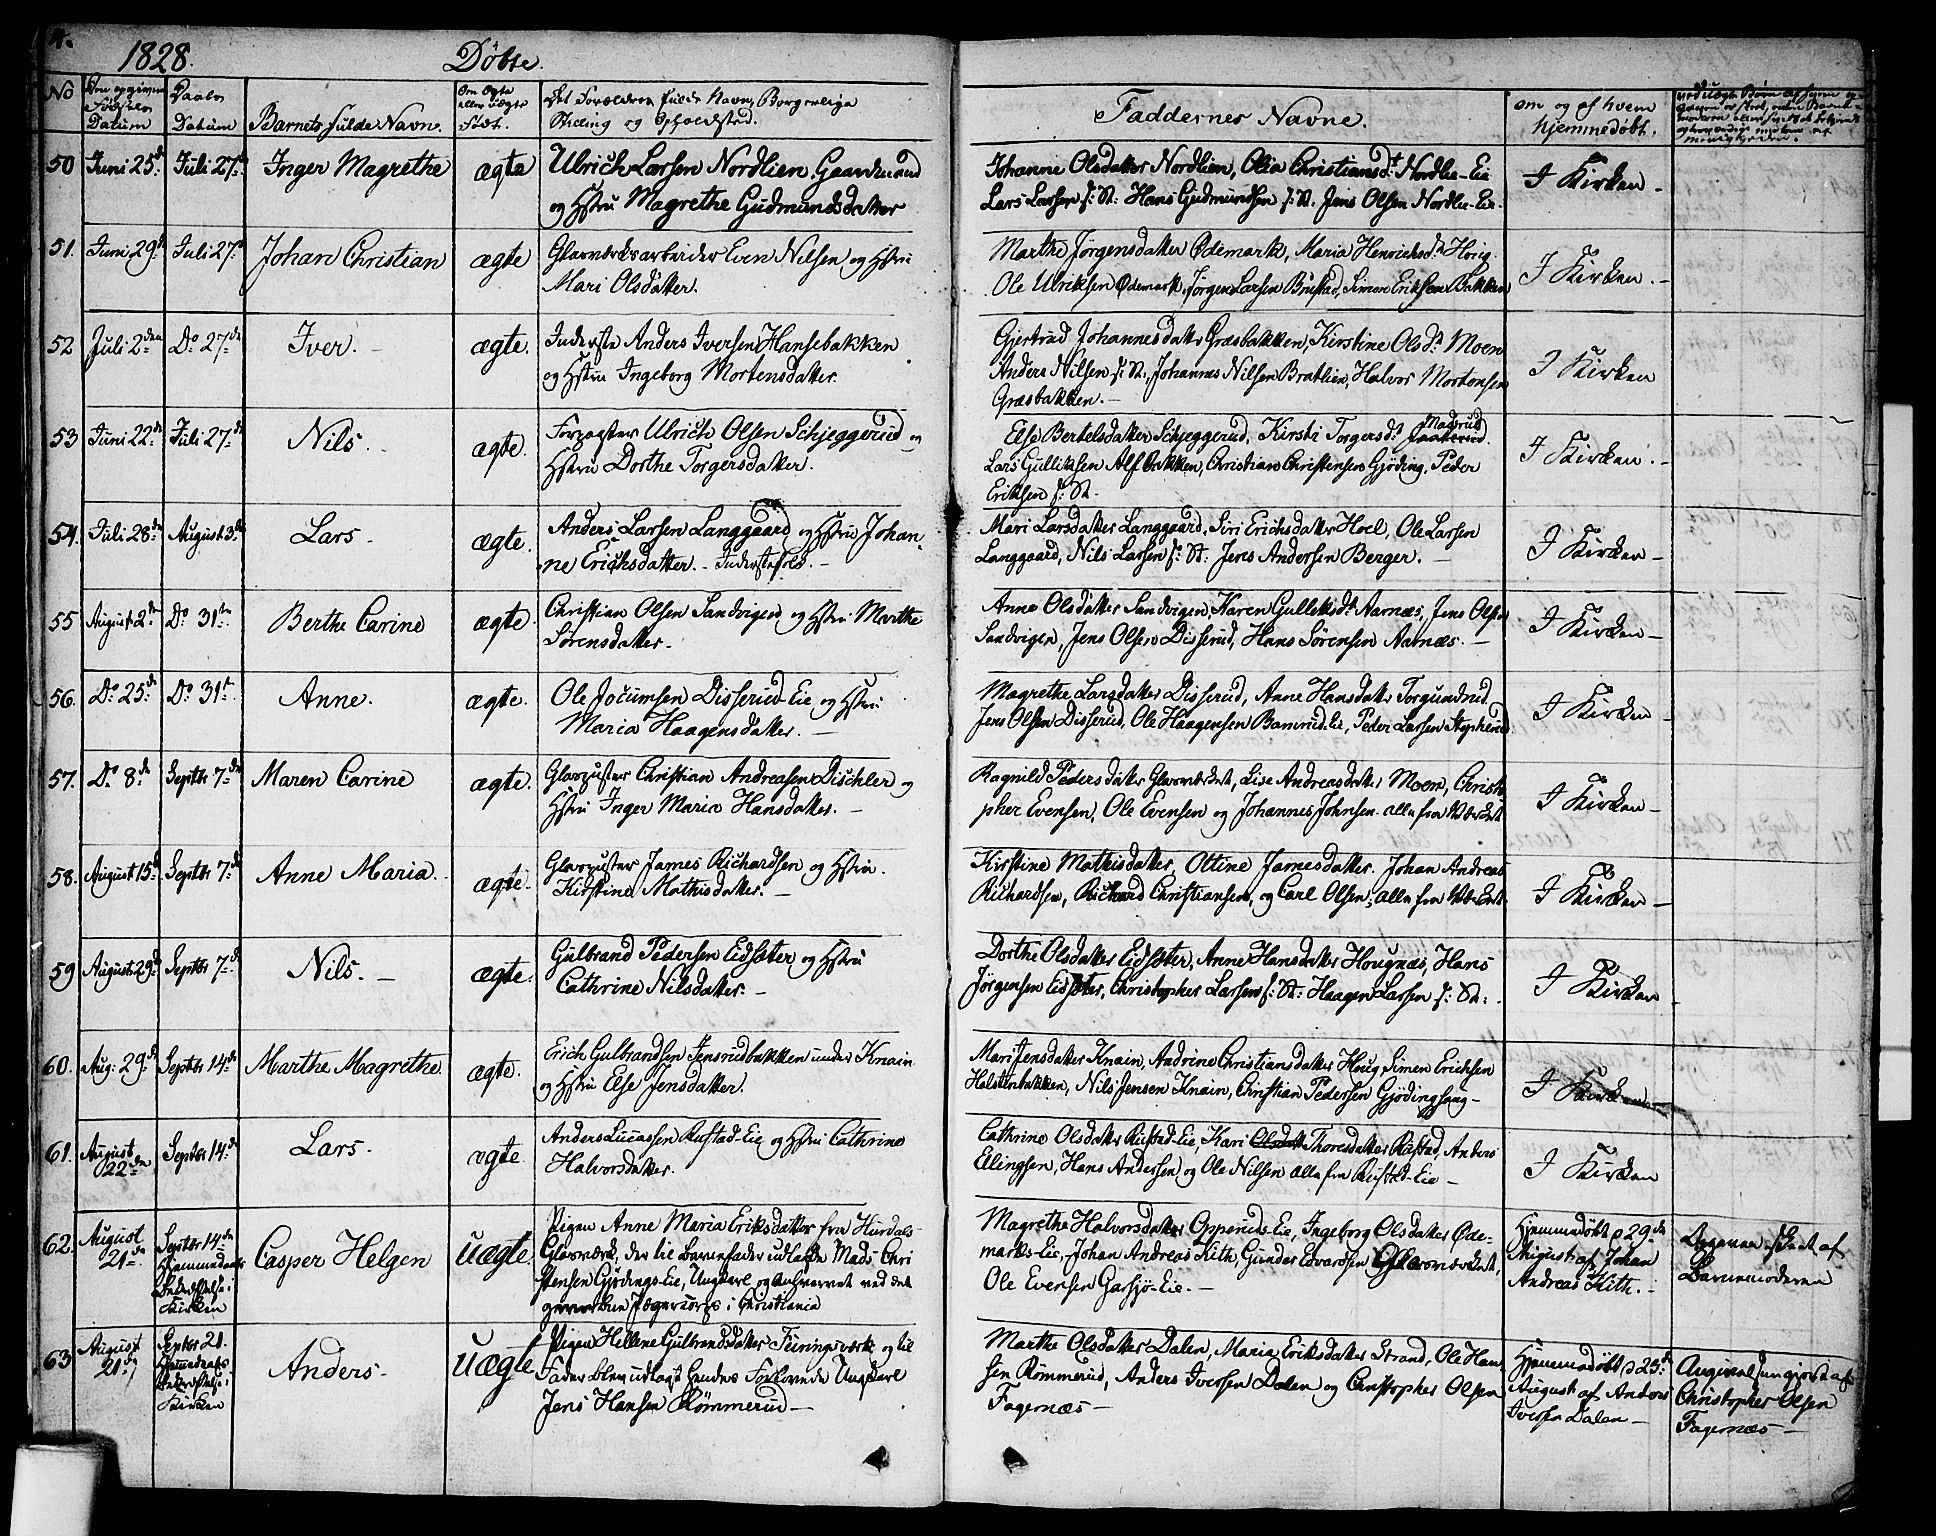 4.
1828.
Döbte.
No
Datum
Daabs
Datum
Barnets fulde Navn.
Om Ægte
eller uægte
Født.
Det Forældren fulde Navn, Borgerlige
Stilling og Opholdsted.
Faddernes Navne.
om og af hvem
hjemmedöbt.
50
Juni 25de
Juli 27de
Inger Magrethe
ægte
Ulrich Larsen Nordlien, Gaardmand
og Hstru Magrethe Gudmundsdatter
Johanne Olsdatter Nordlien, Olia Christiansdt Nordlie-Eie
Lars Larsen s: St: Hans Gudmundsen s: St. Jens Olsen Nordlie-Eie.
I Kirken -
51.
Juni 29de
Juli 27de
Johan Christian
ægte
Glasværksarbeider Even Nilsen og Hstru
Mari Olsdatter.
Marthe Jørgensdatter Ødemark, Maria Henrichsdt Houg.
Ole Ulriksen Ødemark, Jörgen Larsen Brustad, Simon Eriksen Bakken
I Kirken. -
52
Juli 2den
Do 27de
Iver. -
ægte.
Inderste Anders Iversen Hansebakken
og Hstru Ingeborg Mortensdatter.
Gjertrud Johannesdatter Græsbakken, Kirstine Olsdt Moen
Anders Nilsen s: St., Johannes Nilsen Bratlien, Halvor Mortensen
Græsbakken. -
I Kirken
53
Juni 22de
Juli 27de
Nils. -
ægte.
Forpagter Ulrich Olsen Schjeggerud og
Hstru Dorthe Torgersdatter.
Else Bertelsdatter Schjeggerud, Kirsti Torgersdt Madsrud
Lars Gulliksen Alfbakken, Christian Christensen Gjöding, Peder
Eriksen s: St.
I Kirken. -
54.
Juli 28de
August 3de
Lars -
ægte.
Anders Larsen Langgaard og Hstru Johan-
ne Erichsdatter. - Inderstefolk. -
Mari Larsdatter Langgaard, Siri Erichsdatter Hoel, Ole Larsen
Langgaard, Nils Larsen s: St. Jens Andersen Berger. -
I Kirken -
55
August 2de
Do 31te
Berthe Carine
ægte.
Christian Olsen Sandvigen og Hstru Marthe
Sørensdatter.
Anne Olsdatter Sandvigen, Karen Gulleksdt Aarnæs, Jens Olsen
Sandvigen, Jens Olsen Disserud, Hans Sørensen Aarnæs. -
I Kirken -
56.
Do 25de
Do 31te
Anne.
ægte.
Ole Jocumsen Disserud Eie og Hstru
Maria Haagensdatter. -
Magrethe Larsdatter Disserud, Anne Hansdatter Torgundrud
Jens Olsen Disserud, Ole Haagensen Bamrud-Eie, Peder Larsen
I Kirken
57.
Do 8de
Septbr 7de
Maren Carine
ægte.
Glaspuster Christian Andreasen Dischler og
Hstru Inger Maria Hansdatter. -
Ragnild Pedersdatter Glasværket, Lise Andreasdatter Moen, Christo-
pher Evensen, Ole Evensen og Johannes Johnsen - alle fra Værket
I Kirken -
58.
August 15de
Septbr 7de
Anne Maria.
ægte.
Glaspuster James Richardsen og Hstru.
Kirstine Mathisdatter. -
Kirstine Mathisdatter, Ottine Jamesdatter. Johan Andreas
Richardsen, Richard Christiansen, og Carl Olsen; alle fra Værket
I Kirken -
59
August 29de
Septbr 7de
Nils. -
ægte.
Gulbrand Pedersen Eidsæter og Hstru
Cathrine Nilsdatter. -
Dorthe Olsdatter Eidsæter, Anne Hansdatter Hougnæs, Hans
Jörgensen Eidsæter, Christopher Larsen s: St: Haagen Larsen s: St:
I Kirken
60.
Aug: 29de
Septbr 14de
Marthe Magrethe
ægte.
Erich Gulbrandsen Jensrudbakken under Knain
og Hstru Else Jensdatter.
Mari Jensdatter Knain, Andrine Christiansdatter Houg, Simen Erichsen
Holstenbakken, Nils Jensen Knain, Christian Pedersen Gjödinghaug -
I Kirken
61.
August
22den
Septbr 14de
Lars.
ægte.
Anders Lucassen Rustad-Eie og Hstru Cathrine
Halvorsdatter.
Cathrine Olsdatter Rustad-Eie, Kari Olsdatt Thoresdatter Rustad, Anders
Ellingsen, Hans Andersen og Ole Nilsen alle fra Rustad-Eie -
I Kirken
62.
August
21de
Septbr 14de
i
Kirken
Casper Helgen
Uægte.
Pigen Anne Maria Eriksdatter fra Hurdals
Glasværk, der til Barnefader udlagde Mads Chri
stensen Gjödings-Eie, Ungkarl og ved det
Jægercorps i Christiania
Magrethe Halvorsdatter Opperuds-Eie, Ingeborg Olsdatter Öde-
marks-Eie, Johan Andreas Kith, Gunder Edvardsen Glasværket,
Ole Evensen Garsjö-Eie. -
Hjemmedöbt d 29de
August af Johan
Andreas Kith. -
skeet af
Barnemoderen
63
August
21de
Septbr 21.
i
Kirken
Anders -
Uægte
Pigen Hellene Gulbrandsdatter og til
Fader blev udlagt hendes Forlovede Ungkarl
Jens Hansen Römmerud -
Marthe Olsdatter Dalen, Maria Eriksdatter Strand, Ole Han
sen Römmerud, Anders Iversen Dalen og Christopher Olsen
Fagernæs -
Hjemmedöbt d 25de
August af Anders
Iversen Dalen -
Angivelsen gjort af
Christopher Olsen
Fagernæs -